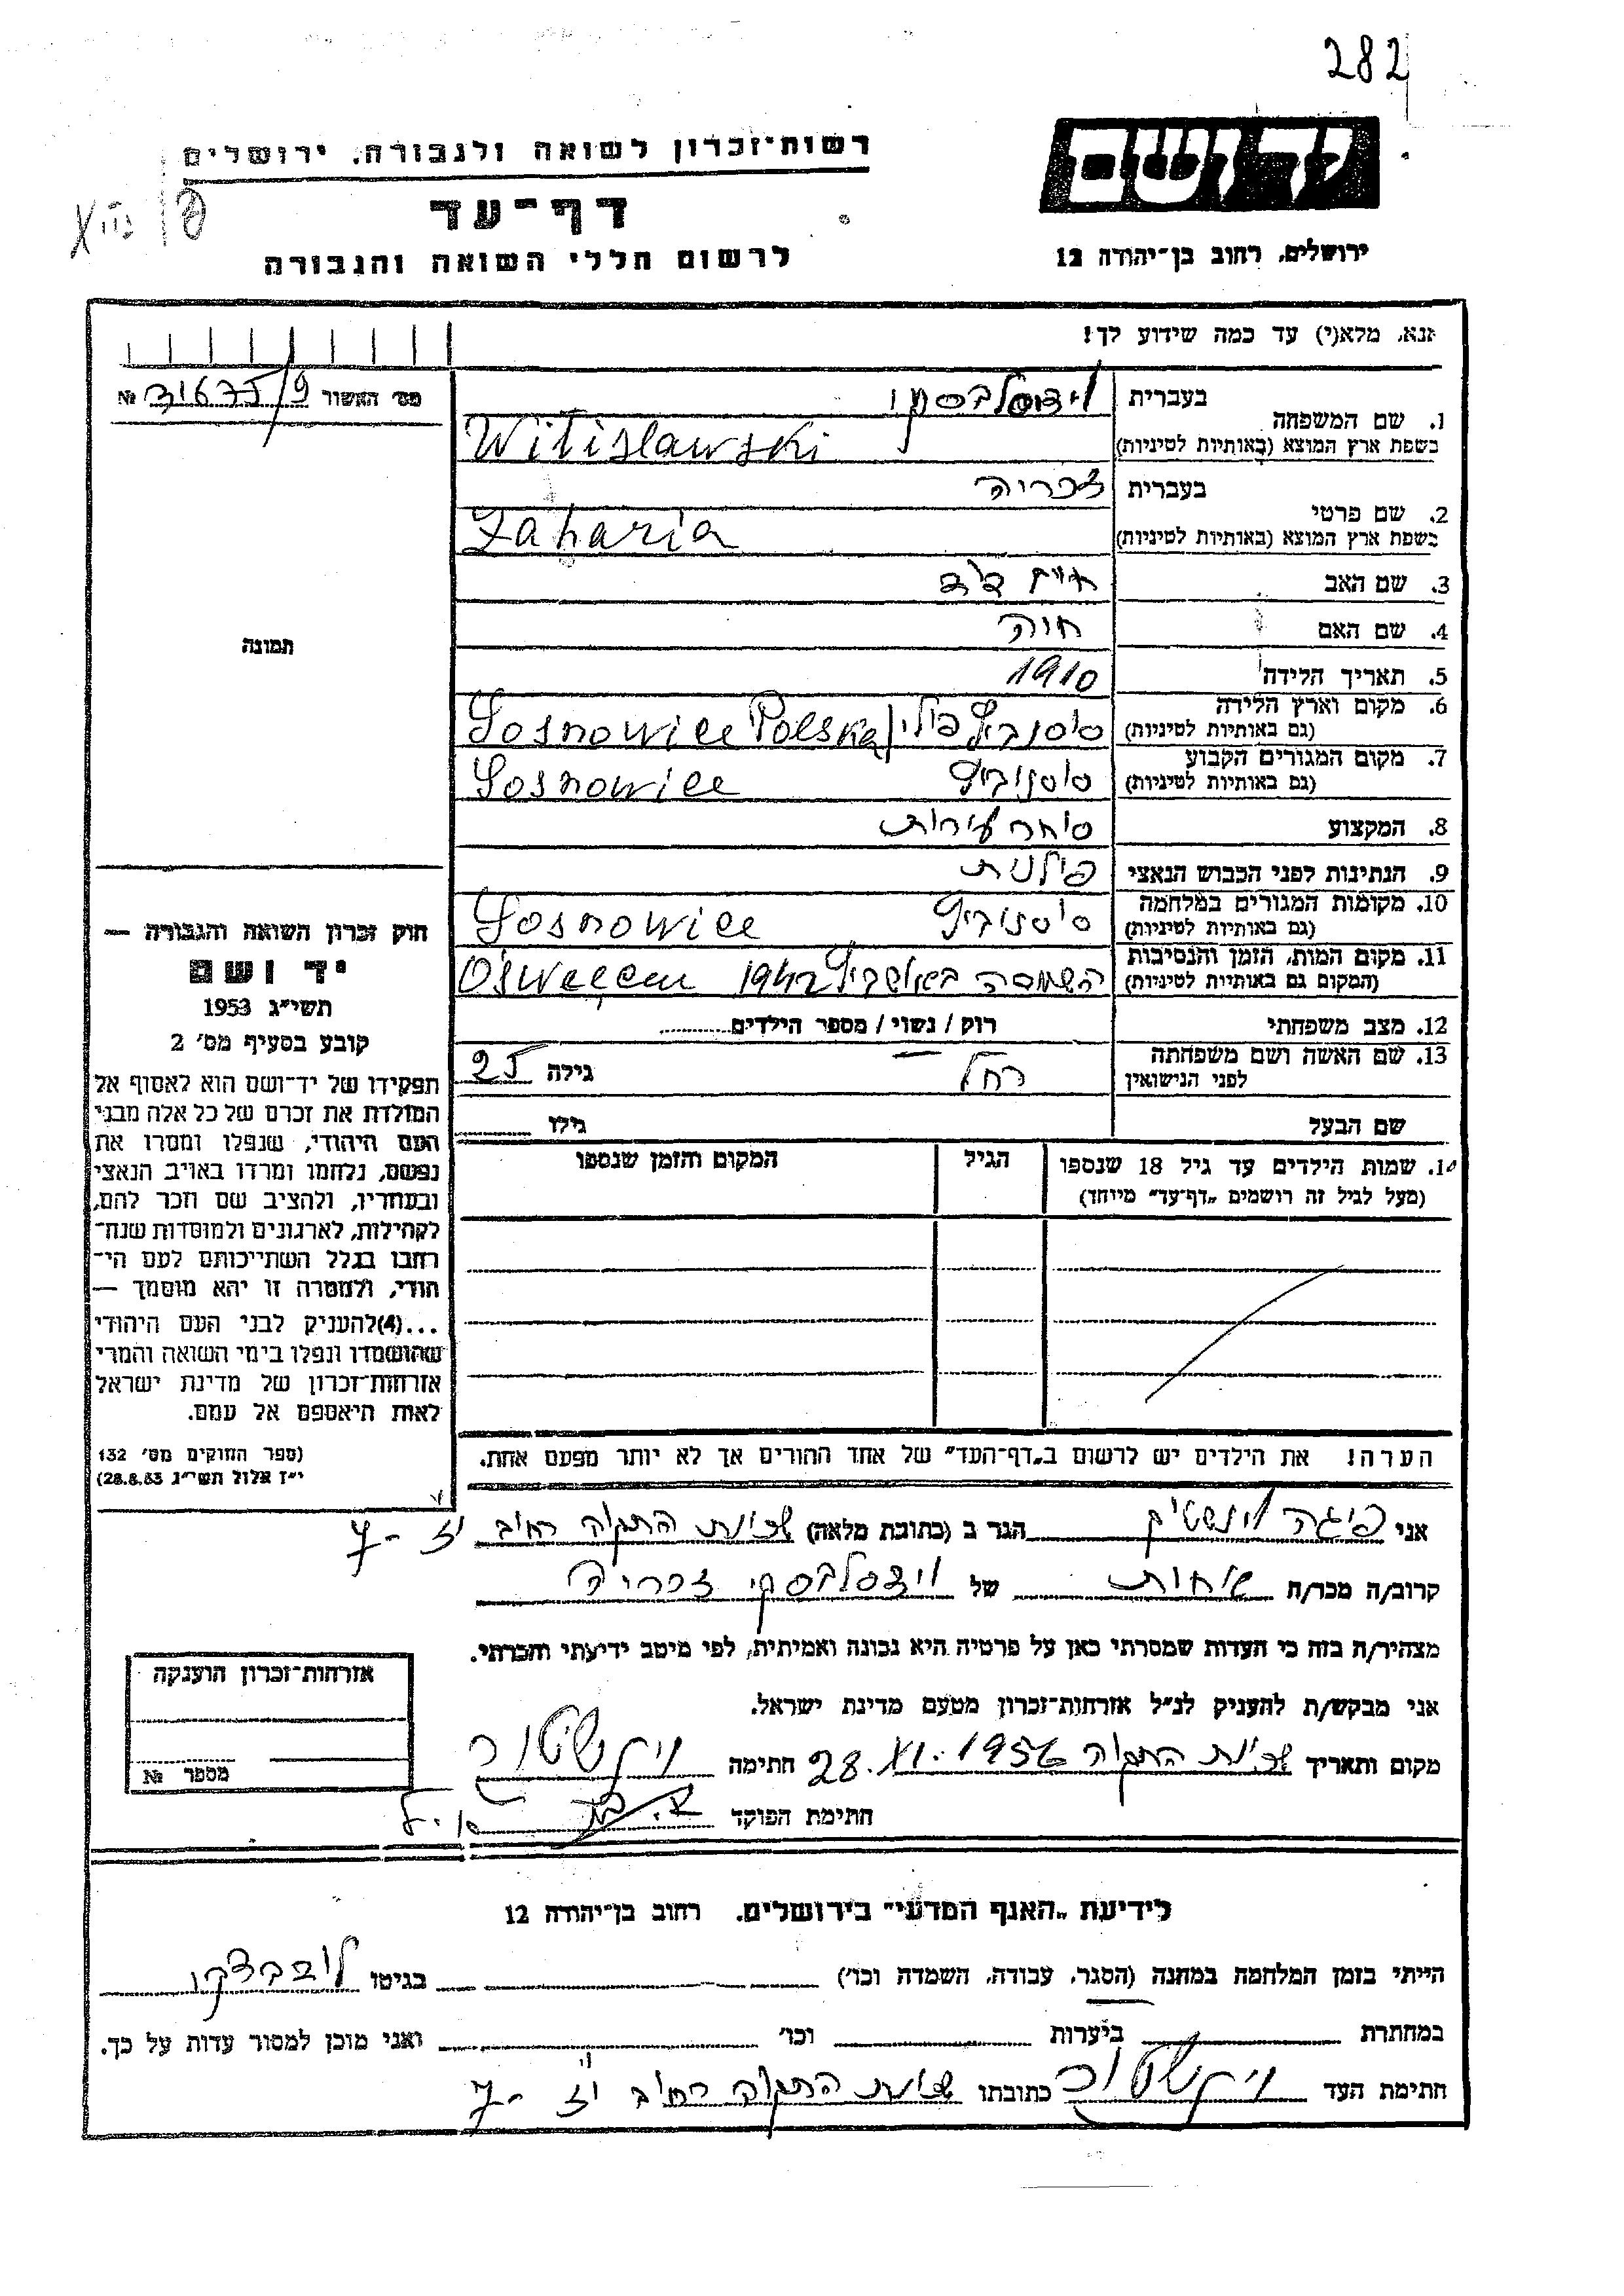 282
יד ושם
רשות־זכרון לשואה ולגבורה, ירושלים
דף־עד
לרשום חללי השואה והגבורה
ירושלים, רחוב בן־יהודה 12
אנא, מלא(י) עד כמה שידוע לך!
מס׳ האשור 31675/9 №
1. שם המשפחה
בעברית
בשפת ארץ המוצא (באותיות לטיניות) Witislawski
2. שם פרטי
בעברית זכריה
בשפת ארץ המוצא (באותיות לטיניות) Zaharia
3. שם האב חיים דוד
4. שם האם חוה
5. תאריך הלידה 1910
6. מקום וארץ הלידה
(גם באותיות לטיניות) סוסנוביץ פולין Sosnowice Polska
7. מקום המגורים הקבוע
(גם באותיות לטיניות) סוסנוביץ Sosnowice
8. המקצוע סוחר עורות
9. הנתינות לפני הכבוש הנאצי פולנית
10. מקומות המגורים במלחמה
(גם באותיות לטיניות) סוסנוביץ Sosnowice
11. מקום המות, הזמן והנסיבות
(המקום גם באותיות לטיניות) השמדה באושביץ 1942
12. מצב משפחתי רוק / נשוי / מספר הילדים
13. שם האשה ושם משפחתה
לפני הנישואין רחל גילה 25
שם הבעל גילו
14. שמות הילדים עד גיל 18 שנספו
(מעל לגיל זה רושמים „דף־עד״ מיוחד)
הגיל
המקום והזמן שנספו
תמונה
חוק זכרון השואה והגבורה —
יד ושם
תשי״ג 1953
קובע בסעיף מס׳ 2
תפקידו של יד־ושם הוא לאסוף אל
המולדת את זכרם של כל אלה מבני
העם היהודי, שנפלו ומסרו את
נפשם, נלחמו ומרדו באויב הנאצי
ובעוזריו, ולהציב שם וזכר להם,
לקהילות, לארגונים ולמוסדות שנח־
רבו בגלל השתייכותם לעם הי־
הודי, ולמטרה זו יהא מוסמך —
...(4)להעניק לבני העם היהודי
שהושמדו ונפלו בימי השואה והמרי
אזרחות־זכרון של מדינת ישראל
לאות היאספם אל עמם.
(ספר החוקים מס׳ 132
י״ז אלול תשי״ג 28.8.53)
הערה! את הילדים יש לרשום ב„דף־העד״ של אחד ההורים אך לא יותר מפעם אחת.
אני פיגה וינשטוק הגר ב (כתובת מלאה) שכונת התקוה רחוב יז - 7
קרוב/ה מכר/ה אחות של זכריה
מצהיר/ה בזה כי העדות שמסרתי כאן על פרטיה היא נכונה ואמיתית, לפי מיטב ידיעתי והכרתי.
אני מבקש/ת להעניק לנ״ל אזרחות־זכרון מטעם מדינת ישראל.
מקום ותאריך שכונת התקוה 28.XI.1956 חתימה
חתימת הפוקד
אזרחות־זכרון הוענקה
מספר №
לידיעת „האגף המדעי״ בירושלים. רחוב בן־יהודה 12
הייתי בזמן המלחמה במחנה (הסגר, עבודה, השמדה וכו׳) בגיטו
במחתרת ביערות וכו׳ ואני מוכן למסור עדות על כך.
חתימת העד כתובתו שכונת התקוה רחוב יז - 7